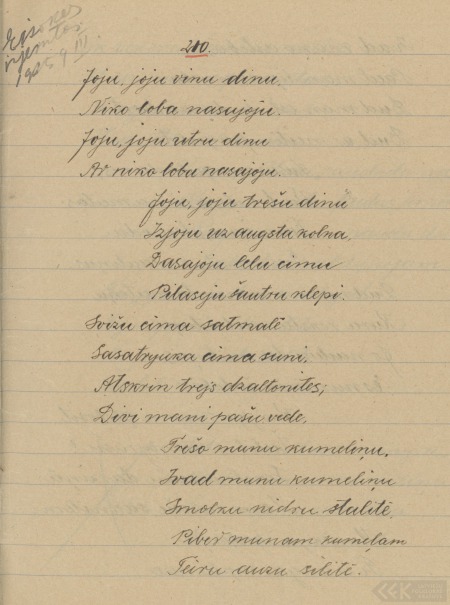 210.
Joju, joju vinu dinu,
Niko loba nasajoju.
Joju, joju utru dinu
Ar niko loba nasajoju.
Joju, joju trešu dinu
Izjoju uz augsta kolna,
Dasajoju lelu cimu
Pilaseju šautru klepi.
Svižu cima satmalē
Sasatryuka cima suni,
Atskrin trejs dzaltonites;
Divi mani pašu vede,
Trešo munu kumeliņu,
Ivad munu kumeliņu
Smolku nidru stalitē,
Piber munam kumeļam
Teiru auzu silitē.